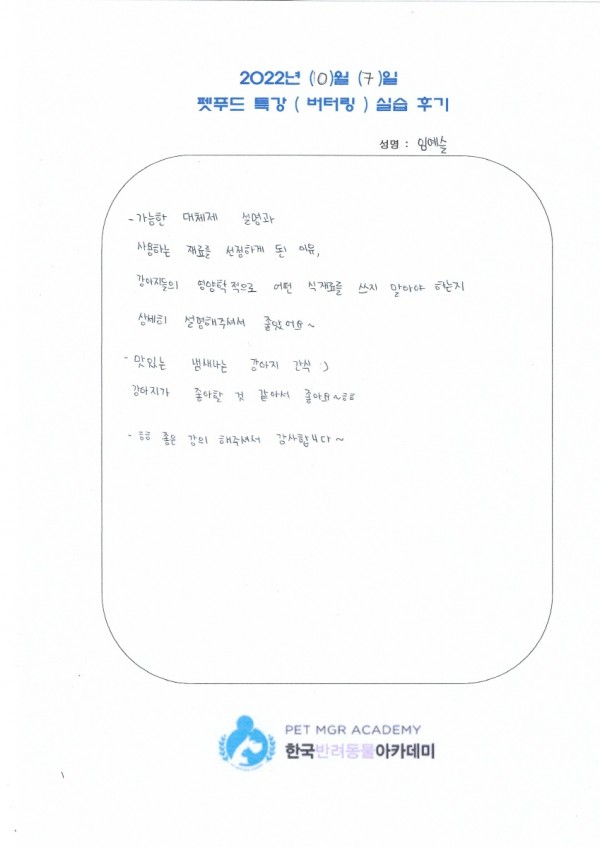 2022년 (10)월 (7)일
펫푸드 특강 ( 버터링 ) 실습 후기
성명 : 임예슬
- 가능한 대체제 설명과
사용하는 재료를 선정하게 된 이유,
강아지들의 영양학적으로 어떤 식재료를 쓰지 말아야 하는지
상세히 설명해주셔서 좋았어요~
- 맛있는 냄새나는 강아지 간식 :)
강아지가 좋아할 것 같아서 좋아요~ㅎㅎ
- ㅎㅎ 좋은 강의 해주셔서 감사합니다~
PET MGR ACADEMY
한국반려동물아카데미